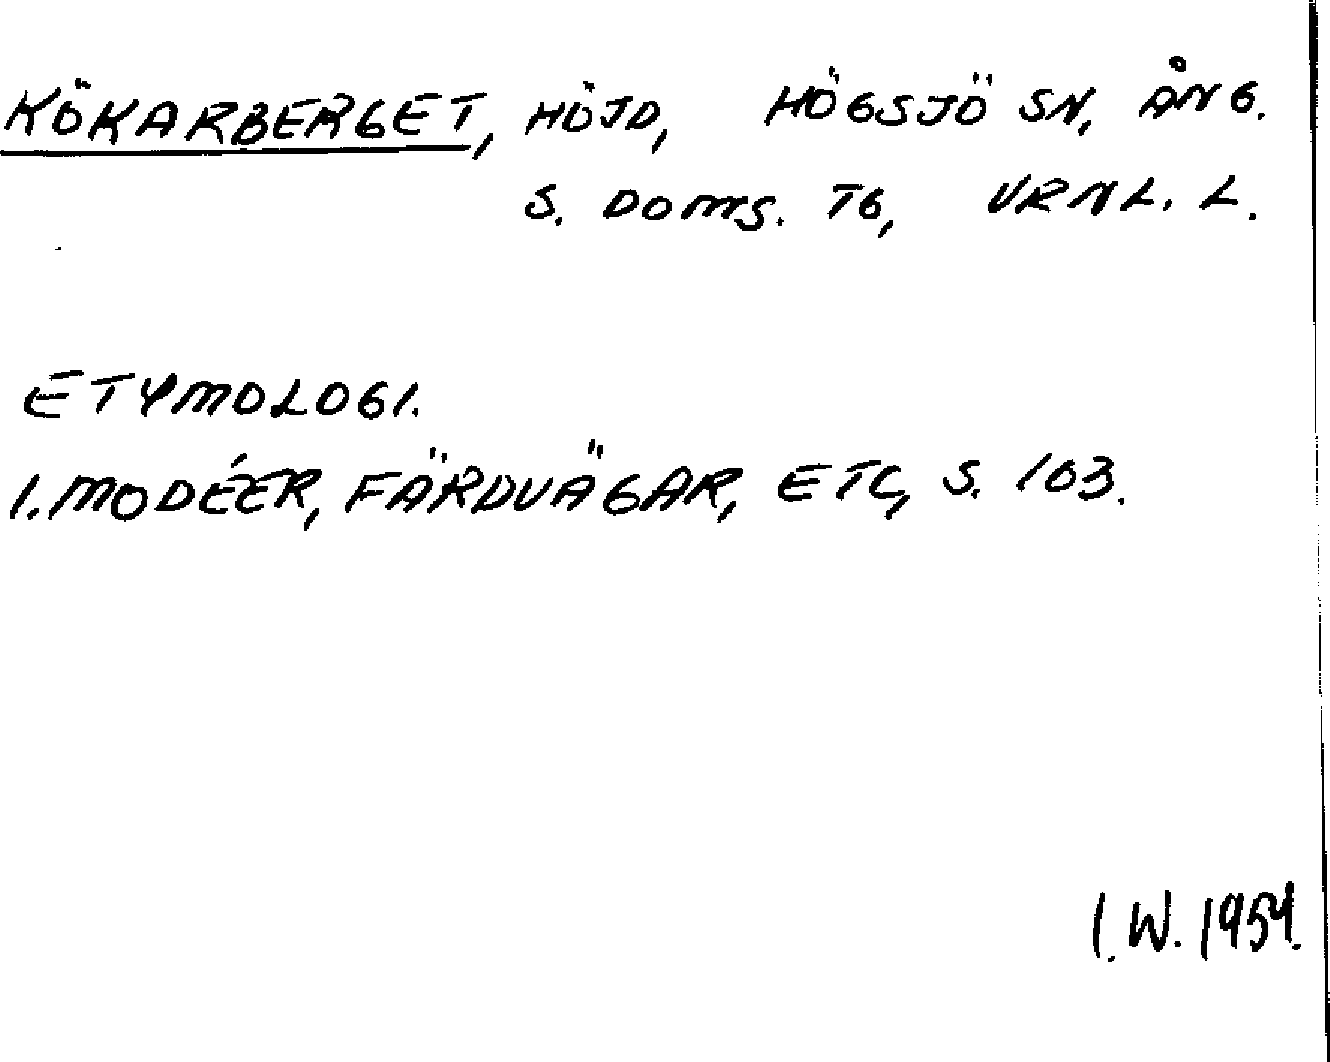 KÖKARBERGET, HÖJD, HÖGSJÖ SN, ÅNG.
S. DOMS. TG, VRNL. L.
ETYMOLOGI.
I. MODÉER, FÄRDVÄGAR, ETC, S. 103.
I. W. 1954.